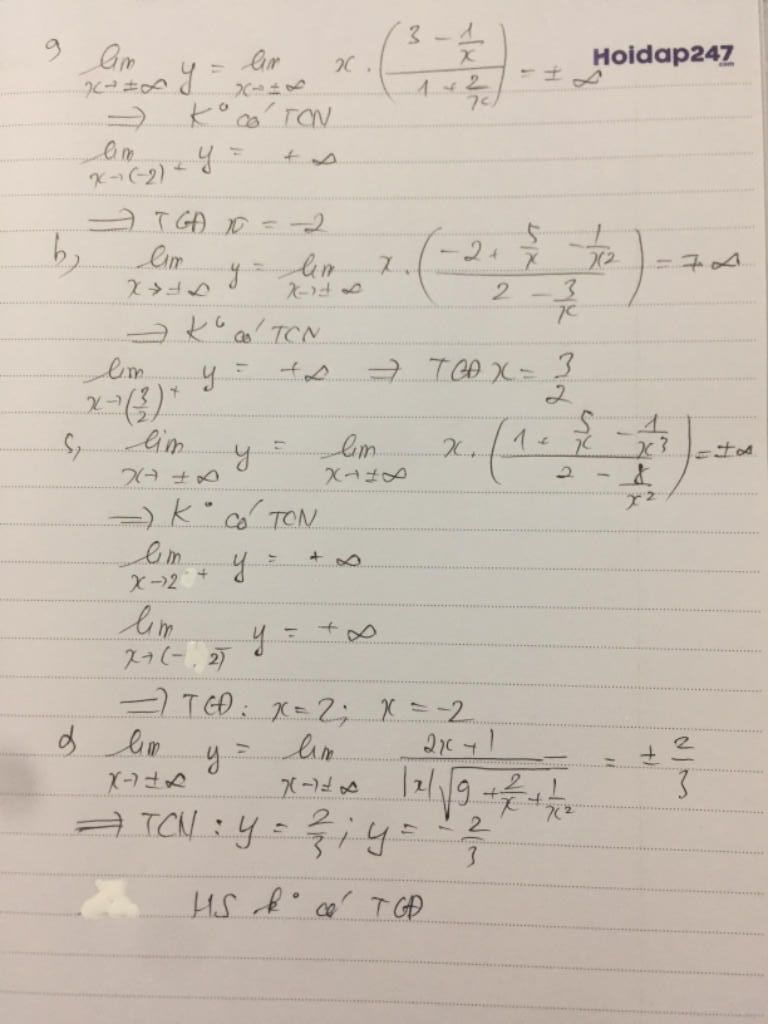 a, lim x→±∞ y = lim x→±∞ x . ((3 - 1/x)/(1 + 2/x)) = ±∞
Hoidap247.com
=> K° có TCN
lim x→(-2)⁺ y = +∞
=> TCĐ x = -2
b, lim x→±∞ y = lim x→±∞ x . ((-2 + 5/x - 1/x²)/(2 - 3/x)) = ∓∞
=> K° có TCN
lim x→(3/2)⁺ y = +∞ => TCĐ x = 3/2
c, lim x→±∞ y = lim x→±∞ x . ((1 + 5/x - 1/x³)/(2 - 8/x²)) = ±∞
=> K° có TCN
lim x→2⁺ y = +∞
lim x→(-2)⁻ y = +∞
=> TCĐ: x = 2; x = -2
d, lim x→±∞ y = lim x→±∞ (2x + 1)/(|x|√(9 + 2/x + 1/x²)) = ±2/3
=> TCN : y = 2/3 ; y = -2/3
HS k° có TCĐ